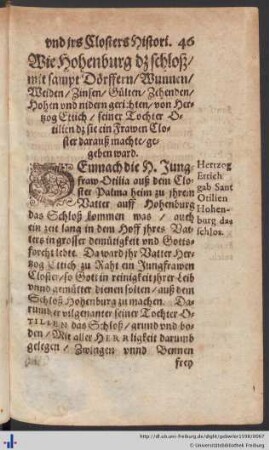 vnd jrs Closters Histori. 46
Wie Hohenburg dz schloß/
mit sampt Dörffern/ Wunnen/
Weiden/ Zinsen/ Gülten/ Zehenden/
Hohen und nidern gerichten/ von Her-
tzog Etich/ seiner Tochter O-
tilien dz sie ein Frawen Clo-
ster darauß machte/ ge-
geben ward.
DEmnach die H. Jung-
fraw Otilia auß dem Clo-
ster Palma heim zu jhrem
Vatter auff Hohenburg
das Schloß kommen was / auch
ein zeit lang in dem Hoff jhres Vat-
ters in grosser demütigkeit vnd Gotts-
forcht lebte. Da ward jhr Vatter Her-
tzog Etich zu Raht ein Jungfrawen
Closter/ so Gott in reinigkeit jhrer Leib
vnnd gemütter dienen solten/ auß dem
Schloß Hohenburg zu machen. Da-
rumb er vilgenanter seiner Tochter O-
TILIEN das Schloß/ grund vnd bo-
den/ Mit aller HERRligkeit darumb
gelegen/ Zwingen vnnd Bennen
frey
Hertzog
Ettich
gab Sant
Otilien
Hohen-
burg das
schlos.
http://dl.ub.uni-freiburg.de/diglit/gebwiler1598/0097
© Universitätsbibliothek Freiburg